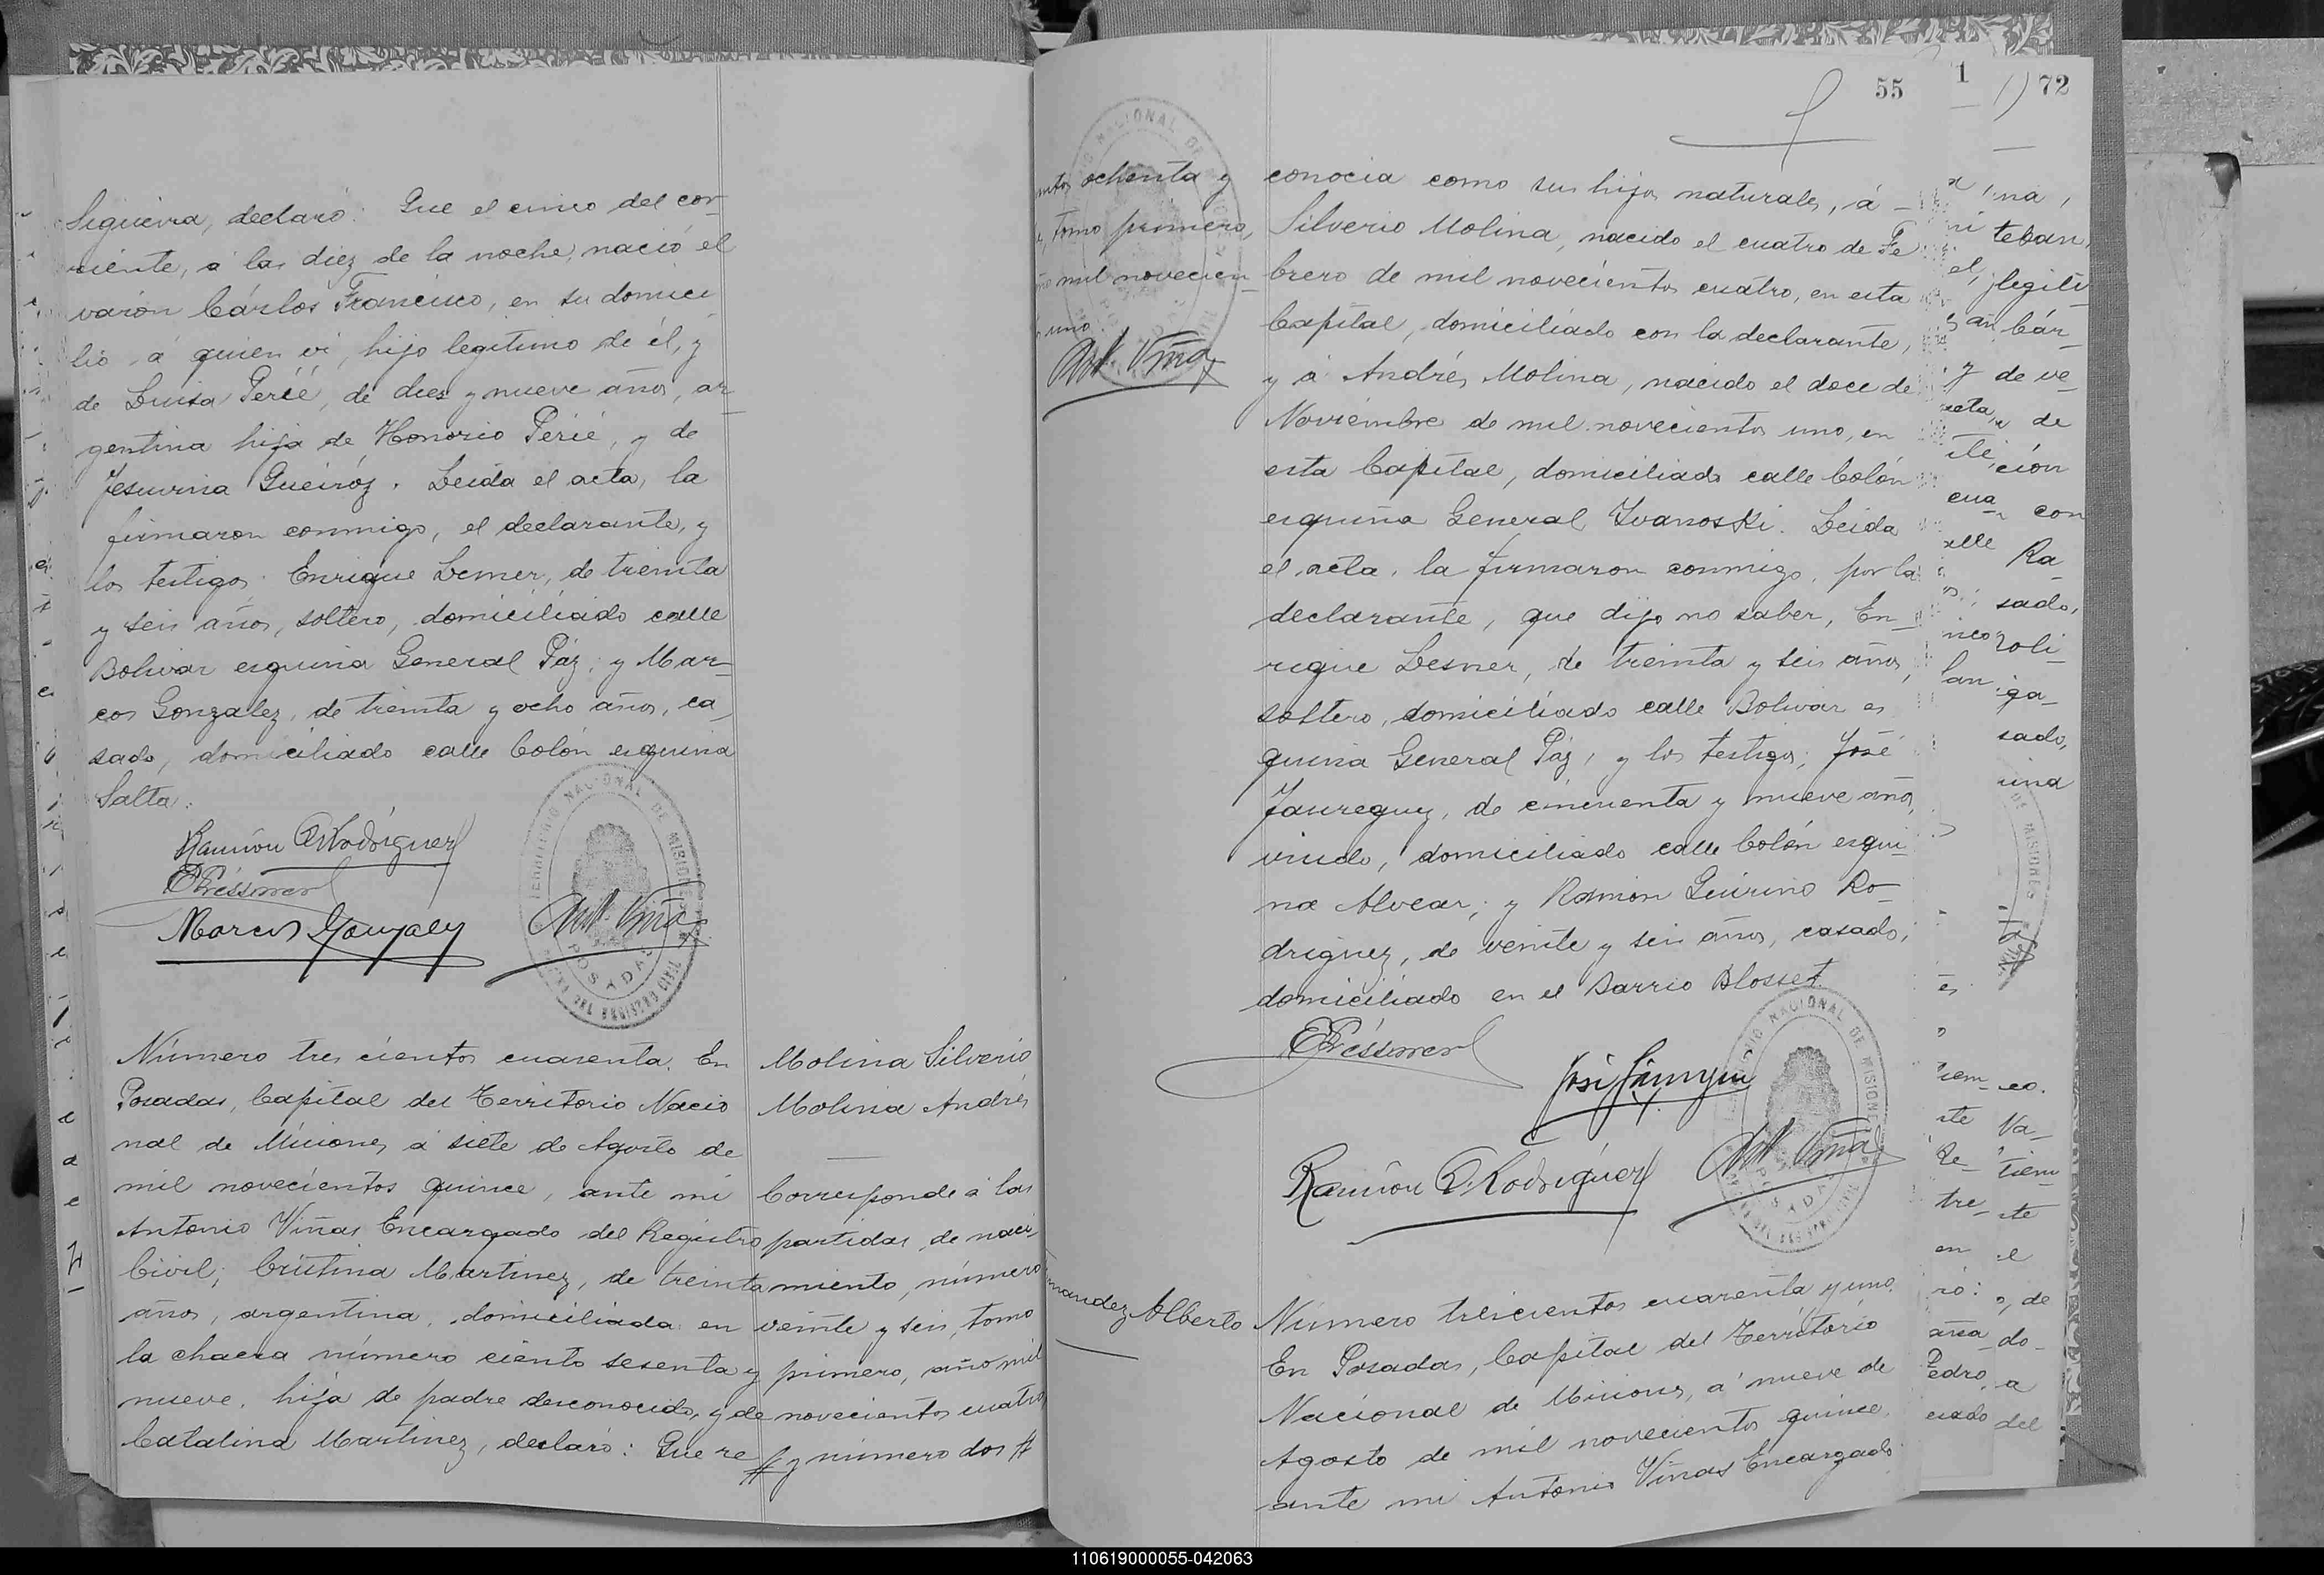 Sigueira, declaró: Que el cinco del cor-
riente, á las diez de la noche, nació el
varón Cárlos Francisco, en su domici-
lio á quien vi, hijo legítimo de él, y
de Luisa Perié, de diez y nueve años, ar-
gentina hija de Honorio Périé, y de
Jesuvina Queiróz. Leida el acta, la
firmaron conmigo, el declarante, y
los testigos: Enrique Lesner, de treinta
y seis años, soltero, domiciliado calle
Bolivar esquina General Páz; y Mar-
cos Gonzalez, de treinta y ocho años, ca-
sado, domiciliado calle Colón esquina
Salta.
Ramón Q Rodríguez
Marcos Gonzalez
TERRITORIO NACIONAL DE MISIONES
POSADAS
Número tres cientos cuarenta. En
Posadas, Capital del Territorio Nacio
nal de Misiones á siete de Agosto de
mil novecientos quince, ante mi
Antonio Viñas Encargado del Registro
Civil; Cristina Martinez, de treinta
años, argentina, domiciliada en
la chacra número ciento sesenta y
nueve, hija de padre desconocido, y de
Catalina Martinez, declaró: Que re
Molina Silverio
Molina Andrés
Corresponde á las
partidas de naci
miento, número
veinte y seis, tomo
primero, año mil
novecientos cuatro,
# y número dos #
55 1 72
ochenta y
tomo primero,
mil novecien-
uno.
conocia como sus hijos naturales, á
Silverio Molina, nacido el cuatro de Fe
brero de mil novecientos cuatro, en esta
Capital, domiciliado con la declarante,
y á Andrés Molina, nacido el doce de
Noviembre de mil novecientos uno, en
esta Capital, domiciliado calle Colón
esquina General Ivanoski. Leida
el acta, la firmaron conmigo, por la
declarante, que dijo no saber, En-
rique Lesner, de treinta y seis años,
soltero, domiciliado calle Bolivar es
quina General Páz, y los testigos; José
Jaureguy, de cincuenta y nueve años,
viudo, domiciliado calle Colón esqui-
na Alvear; y Ramón Quirino Ro-
driguez, de veinte y seis años, casado,
domiciliado en el Barrio Blosset.
Ramón Q. Rodríguez
NACIONAL DE MISIONES
POSADAS
Alberto
Número trescientos cuarenta y uno.
En Posadas, Capital del Territorio
Nacional de Misiones, á nueve de
Agosto de mil novecientos quince,
ante mi Antonio Viñas Encargado
110619000055-042063